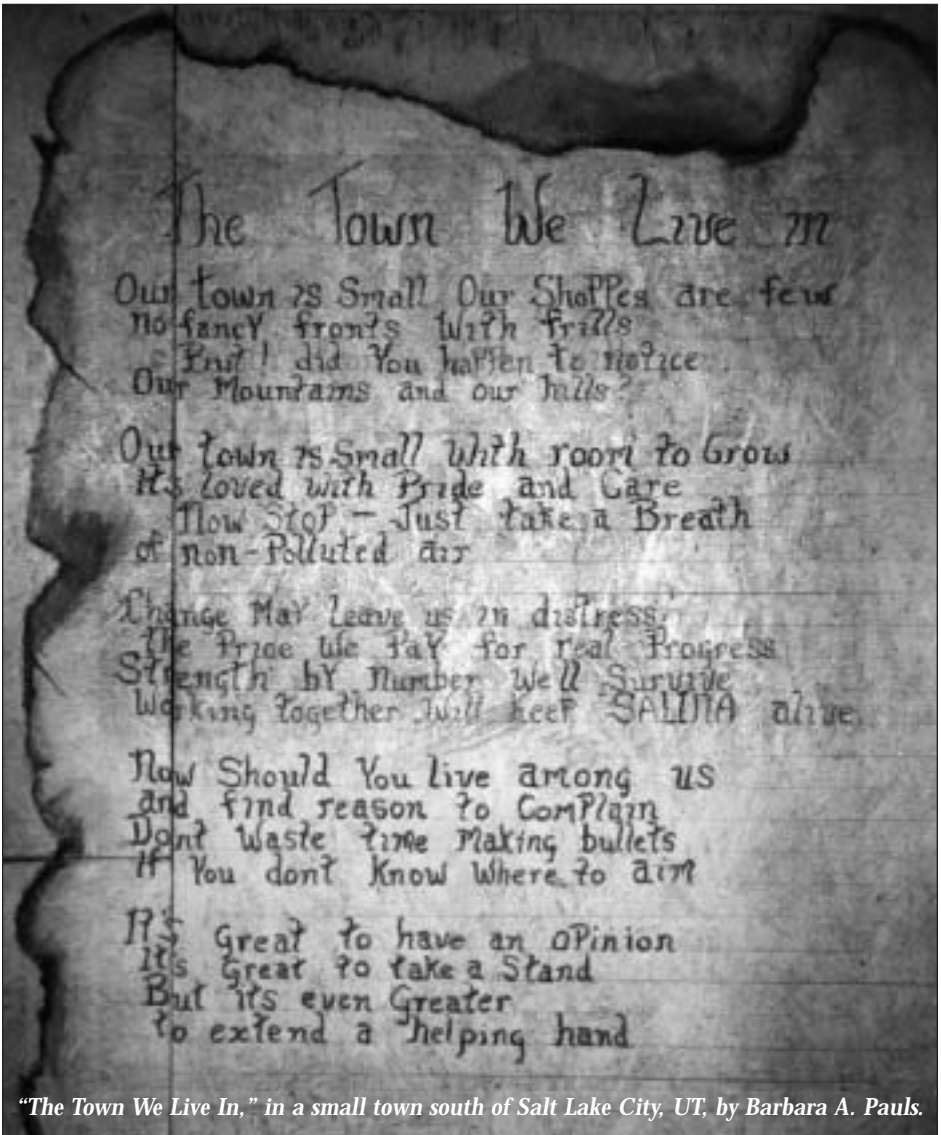 The Town We Live in
Our town is Small Our Shoppes are few
no fancy fronts With frills
But! did You happen to notice
Our Mountains and our hills?
Our town is Small With room to Grow
It's Loved with Pride and Care
Now Stop – Just take a Breath
of non-Polluted air
Change May Leave us in distress
the Price We Pay for real Progress
Strength by Number We'll Survive
Working together Will keep SALINA alive
Now Should You live among us
and find reason to Complain
Dont Waste time Making bullets
If You dont Know Where to aim
It's Great to have an opinion
It's Great to take a Stand
But its even Greater
to extend a helping hand
“The Town We Live In,” in a small town south of Salt Lake City, UT, by Barbara A. Pauls.